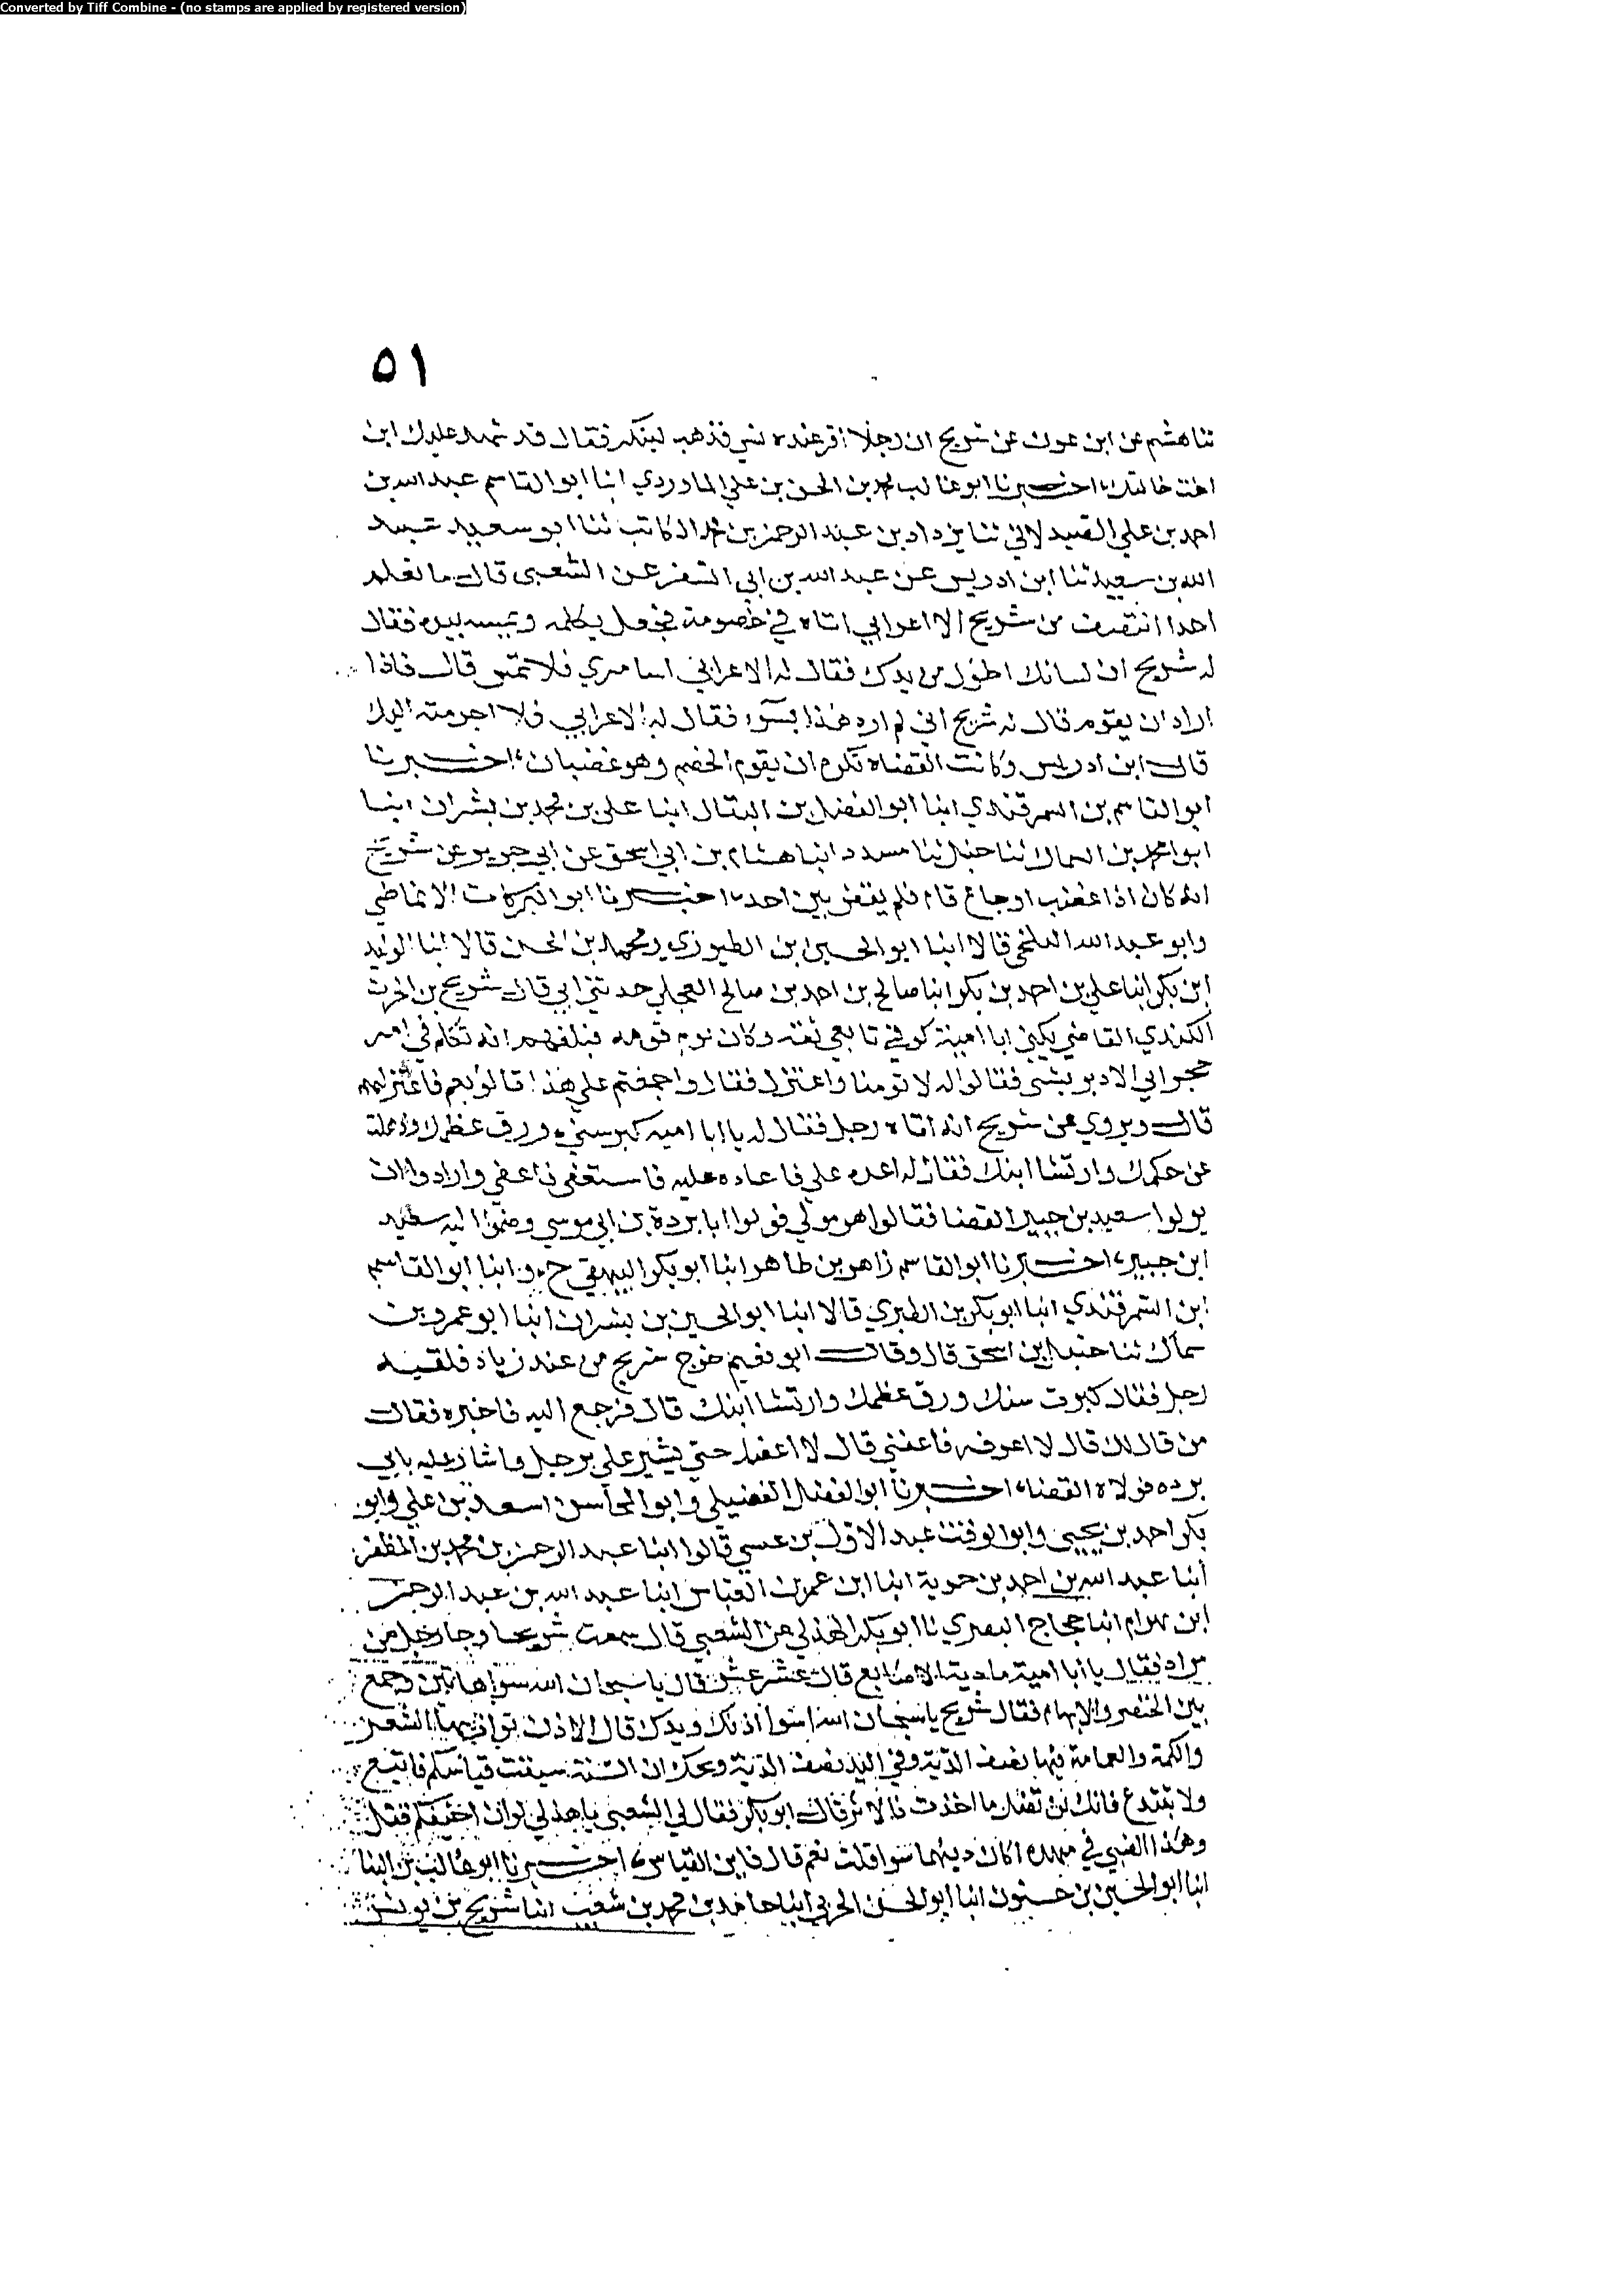 Converted by Tiff Combine - (no stamps are applied by registered version)
٥١
ثنا هشم عن ابن عون عن شريح ان رجلا اقر عنده بشي فذهب لينكر فقال قد شهد عليك ابن
اخت خالتك، اخبرنا ابو غالب محمد بن الحسن بن علي الماوردي ابنا ابو القاسم عبد الله بن
احمد بن علي الصيدلاني ثنا يزداد بن عبد الرحمن بن محمد الكاتب ثنا ابو سعيد عبيد
الله بن سعيد ثنا ابن ادريس عن عبد الله بن ابي السفر عن الشعبي قال ما نعلم
احدا انتصف من شريح الا اعرابي اتاه في خصومة فجعل يكلمه ويمسه بيده فقال
له شريح ان لسانك اطول من يدك فقال له الاعرابي اسامري فلا تمس قال فاذا
اراد ان يقوم قال له شريح اني لم ارد هذا بسوء فقال له الاعرابي فلا اجرمته اليك
قال ابن ادريس وكانت القضاه تكره ان يقوم الخصم وهو غضبان، اخبرنا
ابو القاسم بن السمرقندي ابنا ابو الفضل بن البقال ابنا علي بن محمد بن بشران ابنا
ابو عمر بن السماك ثنا حنبل ثنا مسدد ابنا هشام بن ابي اسحق عن ابي جرير عن شريح
انه كان اذا غضب او جاع قام فلم يقض بين احد، اخبرنا ابو البركات الانماطي
وابو عبد الله البلخي قالا ابنا ابو الحسين ابن الطيوري ومحمد بن الحسن قالا ابنا الوليد
ابن بكر ابنا علي بن احمد بن بكر ابنا صالح بن احمد بن صالح العجلي حدثني ابي قال شريح بن الحرث
الكندي القاضي يكني ابا امية كوفي تابعي ثقه وكان يوم قومه فبلغهم انه تكلم في امر
حجر ابي الادبر بشي فقالوا له لا تومنا واعتزل فقال واجمعتم علي هذا قالوا نعم فاعتزلهم
قال ويروي عن شريح انه اتاه رجل فقال له يا ابا اميه كبر سنك ورق عظمك وذهلت
عن حكمك وارتشا ابنك فقال له اعده علي فاعاده عليه فاستعفي فاعفي وارادوا ان
يولوا سعيد بن جبير القضا فقالوا هو مولي فولوا ابا بردة بن ابي موسي وضموا اليه سعيد
ابن جبير، اخبرنا ابو القاسم زاهر بن طاهر ابنا ابو بكر البيهقي ح، وابنا ابو القاسم
ابن السمرقندي ابنا ابو بكر بن الطبري قالا ابنا ابو الحسين بن بشران ابنا ابو عمرو بن
سماك ثنا حنبل بن اسحق قال وقال ابو نعيم خرج شريح من عند زياد فلقيه
رجل فقال كبرت سنك ورق عظمك وارتشا ابنك قال فرجع اليه فاخبره فقال
من قال لك قال لا اعرفه فاعفني قال لا اعفك حتي تشير علي برجل فاشار عليه بابي
برده فولاه القضاء، اخبرنا ابو الفضل الفضيلي وابو المحاسن اسعد بن علي وابو
بكر احمد بن يحيي وابو الوقت عبد الاول بن عسي قالوا ابنا عبد الرحمن بن محمد بن المظفر
أبنا عبد الله بن احمد بن حموية ابنا ابن عمر بن العباس ابنا عبد الله بن عبد الرحمن
ابن بهرام ابنا حجاج البصري نا ابو بكر الهذلي عن الشعبي قال سمعت شريحا وجاه رجل من
مراد فقال يا ابا امية ما دية الاصابع قال عشر عشر قال يا سبحان الله سوا هاتين وجمع
بين الخنصر والابهام فقال شريح يا سبحان الله اسوا أذنك ويدك قال الاذن يواريها الشعر
والكمة والعمامة فيها نصف الدية وفي اليد نصف الدية ويحك ان السنة سبقت قياسكم فاتبع
ولا تبتدع فانك لن تضل ما اخذت بالاثر قال ابو بكر فقال لي الشعبي يا هذلي لو ان احنفكم قتل
وهذا الصبي في مهده اكان ديتهما سوا قلت نعم قال فاين القياس، اخبرنا ابو غالب بن البنا
ابنا ابو الحسين بن حسنون ابنا ابو الحسن الحربي ابنا حامد بن محمد بن شعيب ابنا شريح بن يونس